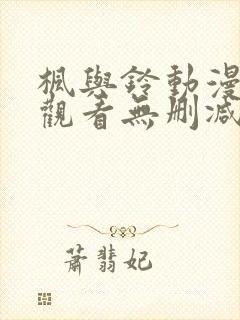 楓與鈴動漫
觀看無刪減
蕭翡妃